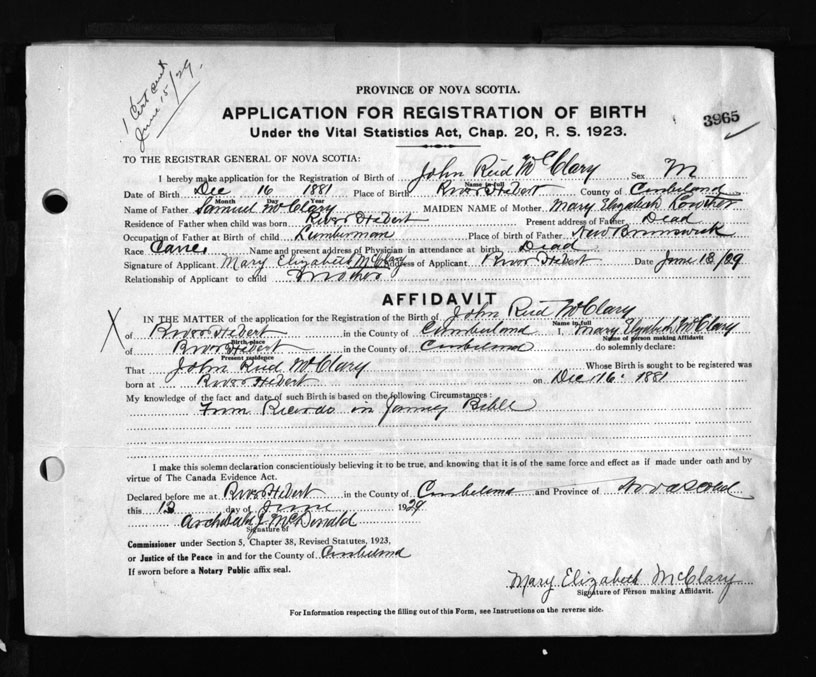 1 Cert sent
June 15/29.
PROVINCE OF NOVA SCOTIA.
APPLICATION FOR REGISTRATION OF BIRTH
3965
Under the Vital Statistics Act, Chap. 20, R. S. 1923.
TO THE REGISTRAR GENERAL OF NOVA SCOTIA:
I hereby make application for the Registration of Birth of John Reid McClary Sex M
Name in full
Date of Birth Dec 16 1881 Place of Birth River Hebert County of Cumberland
Month Day Year
Name of Father Samuel McClary MAIDEN NAME of Mother Mary Elizabeth
Residence of Father when child was born River Hebert Present address of Father Dead
Occupation of Father at Birth of child Lumberman Place of birth of Father New Brunswick
Race Name and present address of Physician in attendance at birth Dead
Signature of Applicant Mary Elizabeth McClary Address of Applicant River Hebert Date June 13/29
Relationship of Applicant to child Mother
AFFIDAVIT
IN THE MATTER of the application for the Registration of the Birth of John Reid McClary
Name in full
X of River Hebert in the County of Cumberland I, Mary Elizabeth McClary
Birth-place Name of person making Affidavit
of River Hebert in the County of Cumberland do solemnly declare:
Present residence
That John Reid McClary Whose Birth is sought to be registered was
born at River Hebert on Dec 16 1881
My knowledge of the fact and date of such Birth is based on the following Circumstances:
From Records in Family Bible
I make this solemn declaration conscientiously believing it to be true, and knowing that it is of the same force and effect as if made under oath and by
virtue of The Canada Evidence Act.
Declared before me at River Hebert in the County of Cumberland and Province of Nova Scotia
this 13 day of June 1929
Archibald J McDonald
Signature of
Commissioner under Section 5, Chapter 38, Revised Statutes, 1923,
or Justice of the Peace in and for the County of Cumberland
If sworn before a Notary Public affix seal.
Mary Elizabeth McClary
Signature of Person making Affidavit.
For Information respecting the filling out of this Form, see Instructions on the reverse side.